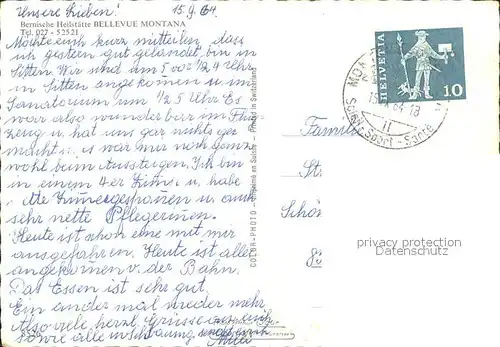 Unsere Lieben! 15.9.64.
Bernische Heilstätte BELLEVUE MONTANA
Tel. 027 - 5 25 21
Möchte euch kurz mitteilen, dass
ich gestern gut gelandet bin in
Sitten. Wir sind um 5 vor 1/2 4 Uhr
in Sitten angekommen u. im
Sanatorium um 1/2 5 Uhr. Es
war also wunderbar im Flug
zeug u. hat uns gar nichts ge
macht u. es war mir noch ganz
wohl beim Aussteigen. Ich bin
in einem 4er Zimmer u. habe
Zimmergespanen u. auch
sehr nette Pflegerinnen.
Heute ist schon eine mit mir
ausgefahren. Heute ist alles
angekommen v. der Bahn.
Das Essen ist sehr gut.
Ein ander mal wieder mehr
Also viele herzl. Grüsse an euch
sowie alle
COLOR-PHOTO - Imprimé en Suisse - Printed in Switzerland
HELVETIA
10
MONTANA
15. 64-18
Soleil Sport - Santé
Familie
St
Schön
8
privacy protection
WATERMARK